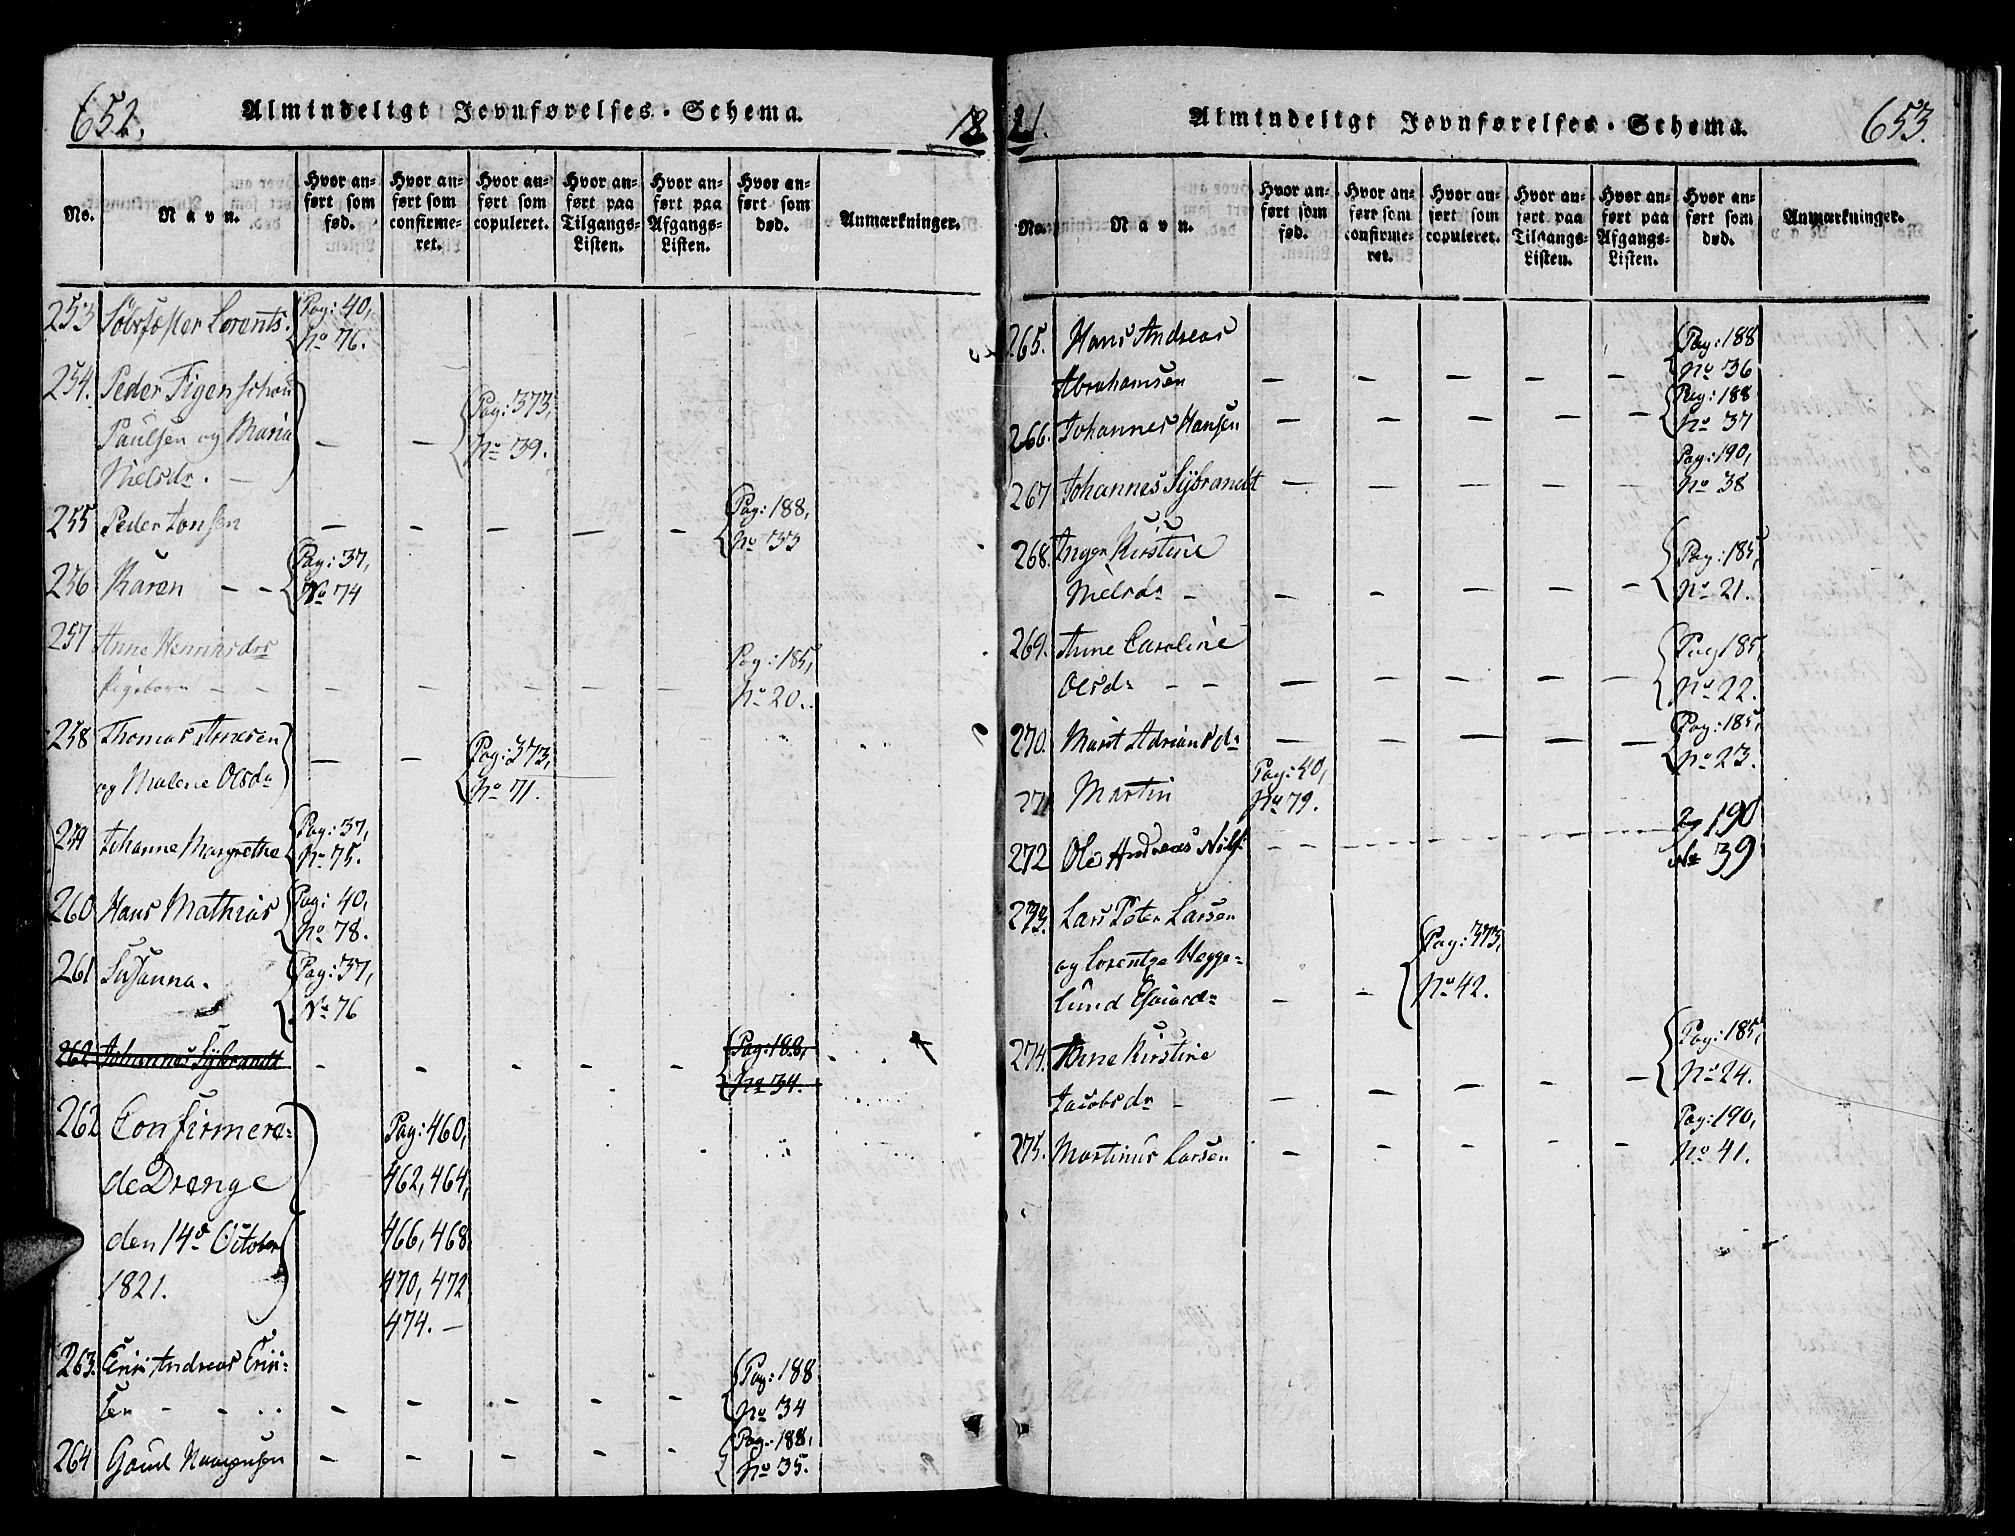 652.
Almindeligt Jevnførelses-Schema.
18
No.
Navn.
Hvor an-
ført som
fød.
Hvor an-
ført som
confirme-
ret.
Hvor an-
ført som
copuleret.
Hvor an-
ført paa
Tilgangs-
Listen.
Hvor an-
ført paa
Afgangs-
Listen.
Hvor an-
ført som
død.
Anmærkninger.
253 Lorents. Pag: 40,
No 76.
254. Peder Figenschou
Paulsen og Maria — — Pag: 373,
Nielsdr. — No 39.
255 Peder Jonsen — — — — — Pag: 188,
No 33
256 Karen — — Pag: 37,
No 74
257 Anne Henriksdr
Pigebarn — — — — — — — Pag: 185,
No 20.
258 Thomas Arnesen
og Malene Olsdr — — Pag: 373,
No 71.
259 Johanne Margrethe Pag: 37,
No 75.
260 Hans Mathias Pag: 40,
No 78.
261 Susanna. Pag: 37,
No 76
262 Johannes Sybrandt — — — — — Pag: 188,
No 34.
262 Confirmere-
de Drenge
den 14de October
1821.
Pag: 460,
462, 464,
466, 468,
470, 472,
474. —
263. Erik Andreas Erik-
sen — — — — — Pag: 188
No 34
264 — — — — — Pag: 188,
No 35.
21.
Almindeligt Jevnførelses-Schema.
653.
No.
Navn.
Hvor an-
ført som
fød.
Hvor an-
ført som
confirme-
ret.
Hvor an-
ført som
copuleret.
Hvor an-
ført paa
Tilgangs-
Listen.
Hvor an-
ført paa
Afgangs-
Listen.
Hvor an-
ført som
død.
Anmærkninger.
265. Hans Andreas
Abrahamsen — — — — — Pag: 188
No 36
266. Johannes Hansen — — — — — Pag: 188
No 37
267 Johannes Sybrandt — — — — — Pag: 190,
No 38
268. Inger Kirstine
Nielsdr — — — — — — Pag: 185,
No 21.
269. Anne Caroline
Olsdr — — — — — — — Pag 185,
No 22.
270. Marit Adriansdr — — — — — Pag: 185,
No 23.
271 Martin Pag: 40,
No 79.
272 Ole Andreas Nils: — — — Pag 190
No 39
273. Lars Peter Larsen
og Lorentze Hegge-
lund — — Pag: 373,
No 42.
274. Anne Kirstine
Jacobsdr — — — — — — Pag: 185,
No 24.
275. Martinus Larsen — — — — — Pag: 190,
No 41.